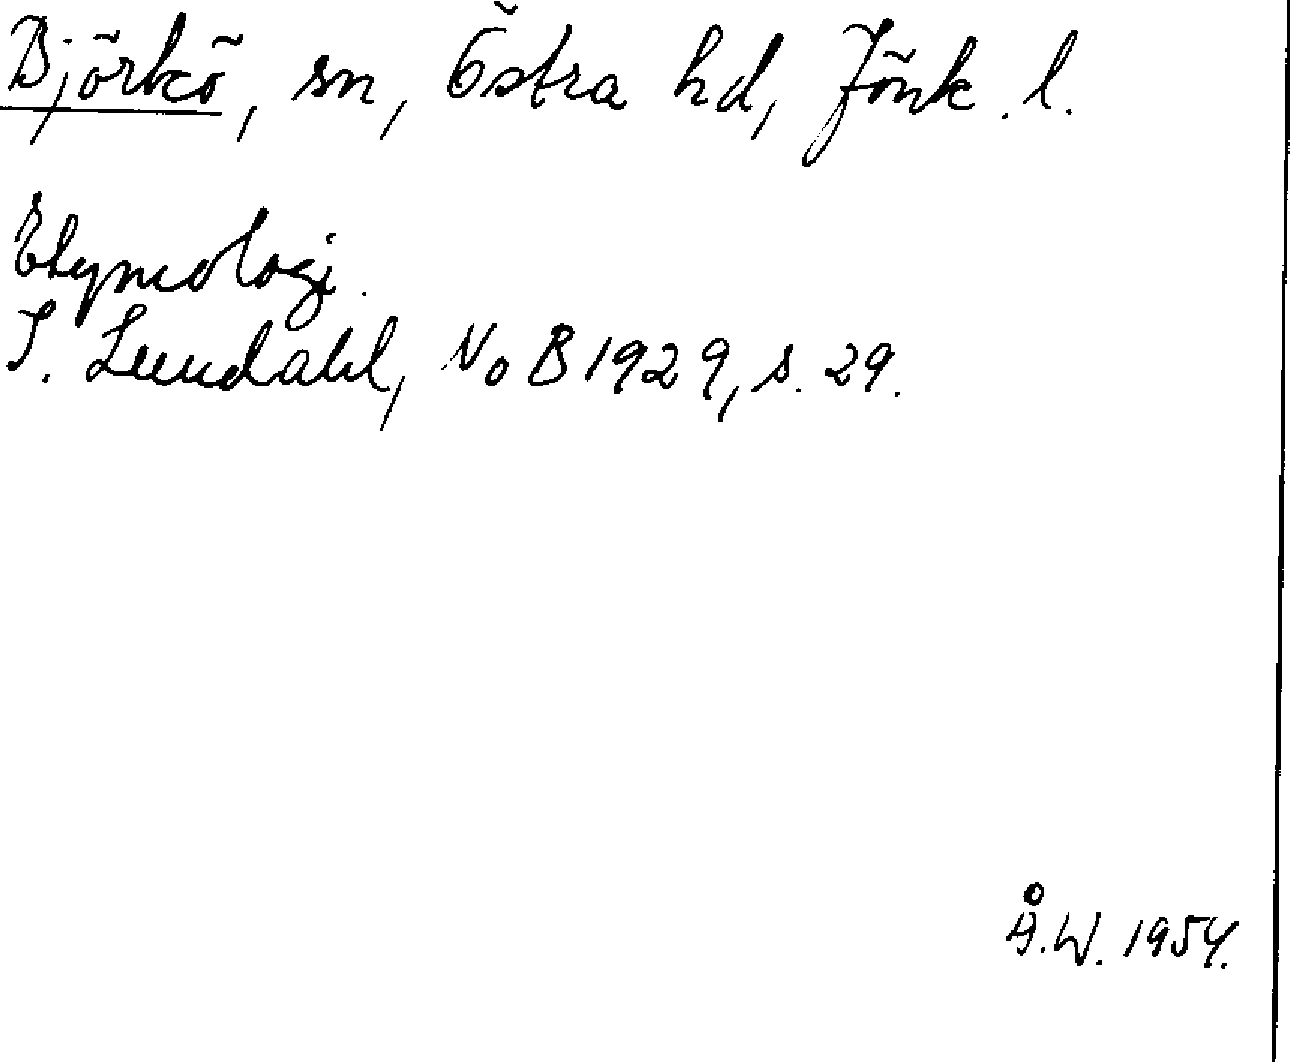 Björkö, sn, Östra hd, Jönk. l.
Etymologi.
I. Lundahl, NoB 1929, s. 29.
Å.W. 1954.